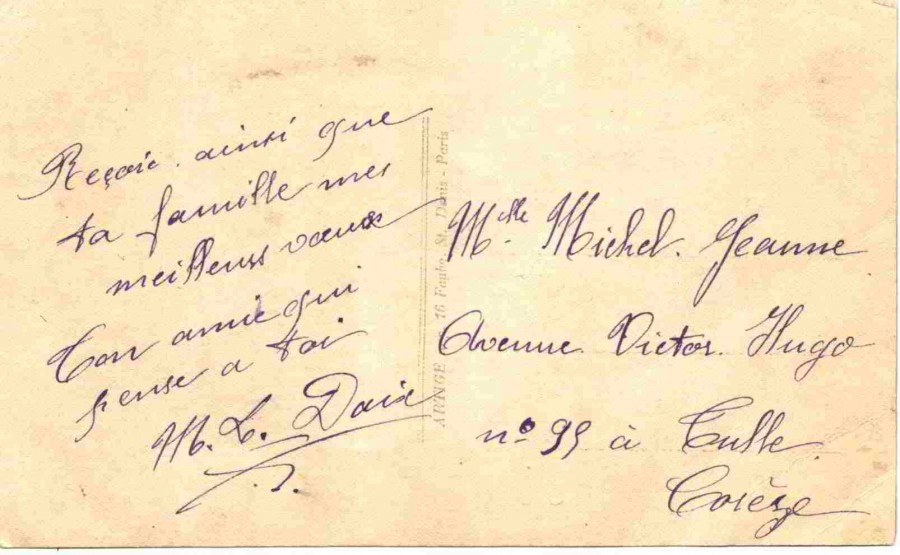 Reçois ainsi que
ta famille mes
meilleurs vœux
Ton amie qui
pense a toi
M. L.
Mlle Michel. Jeanne
Avenue Victor. Hugo
n° 95 à Tulle.
Corèze
16 Faubg. St. Denis - Paris